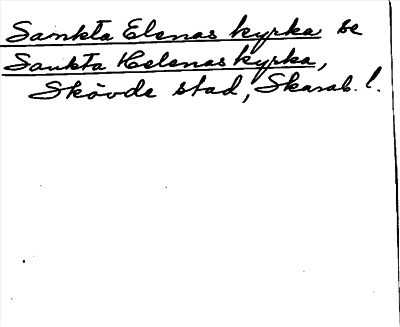 Sankta Elenas kyrka se
Sankta Helenas kyrka,
Skövde stad, Skarab. l.